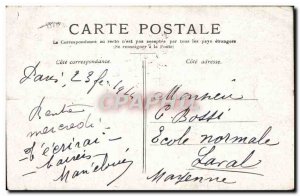 CARTE POSTALE
La Correspondance au recto n'est pas acceptée par tous les pays étrangers
(Se renseigner à la Poste)
Côté correspondance.
Côté adresse.
Paris, 23 fév
Monsieur
C Bossi
Ecole normale
Laval
Mayenne
mercredi
t'écrirai